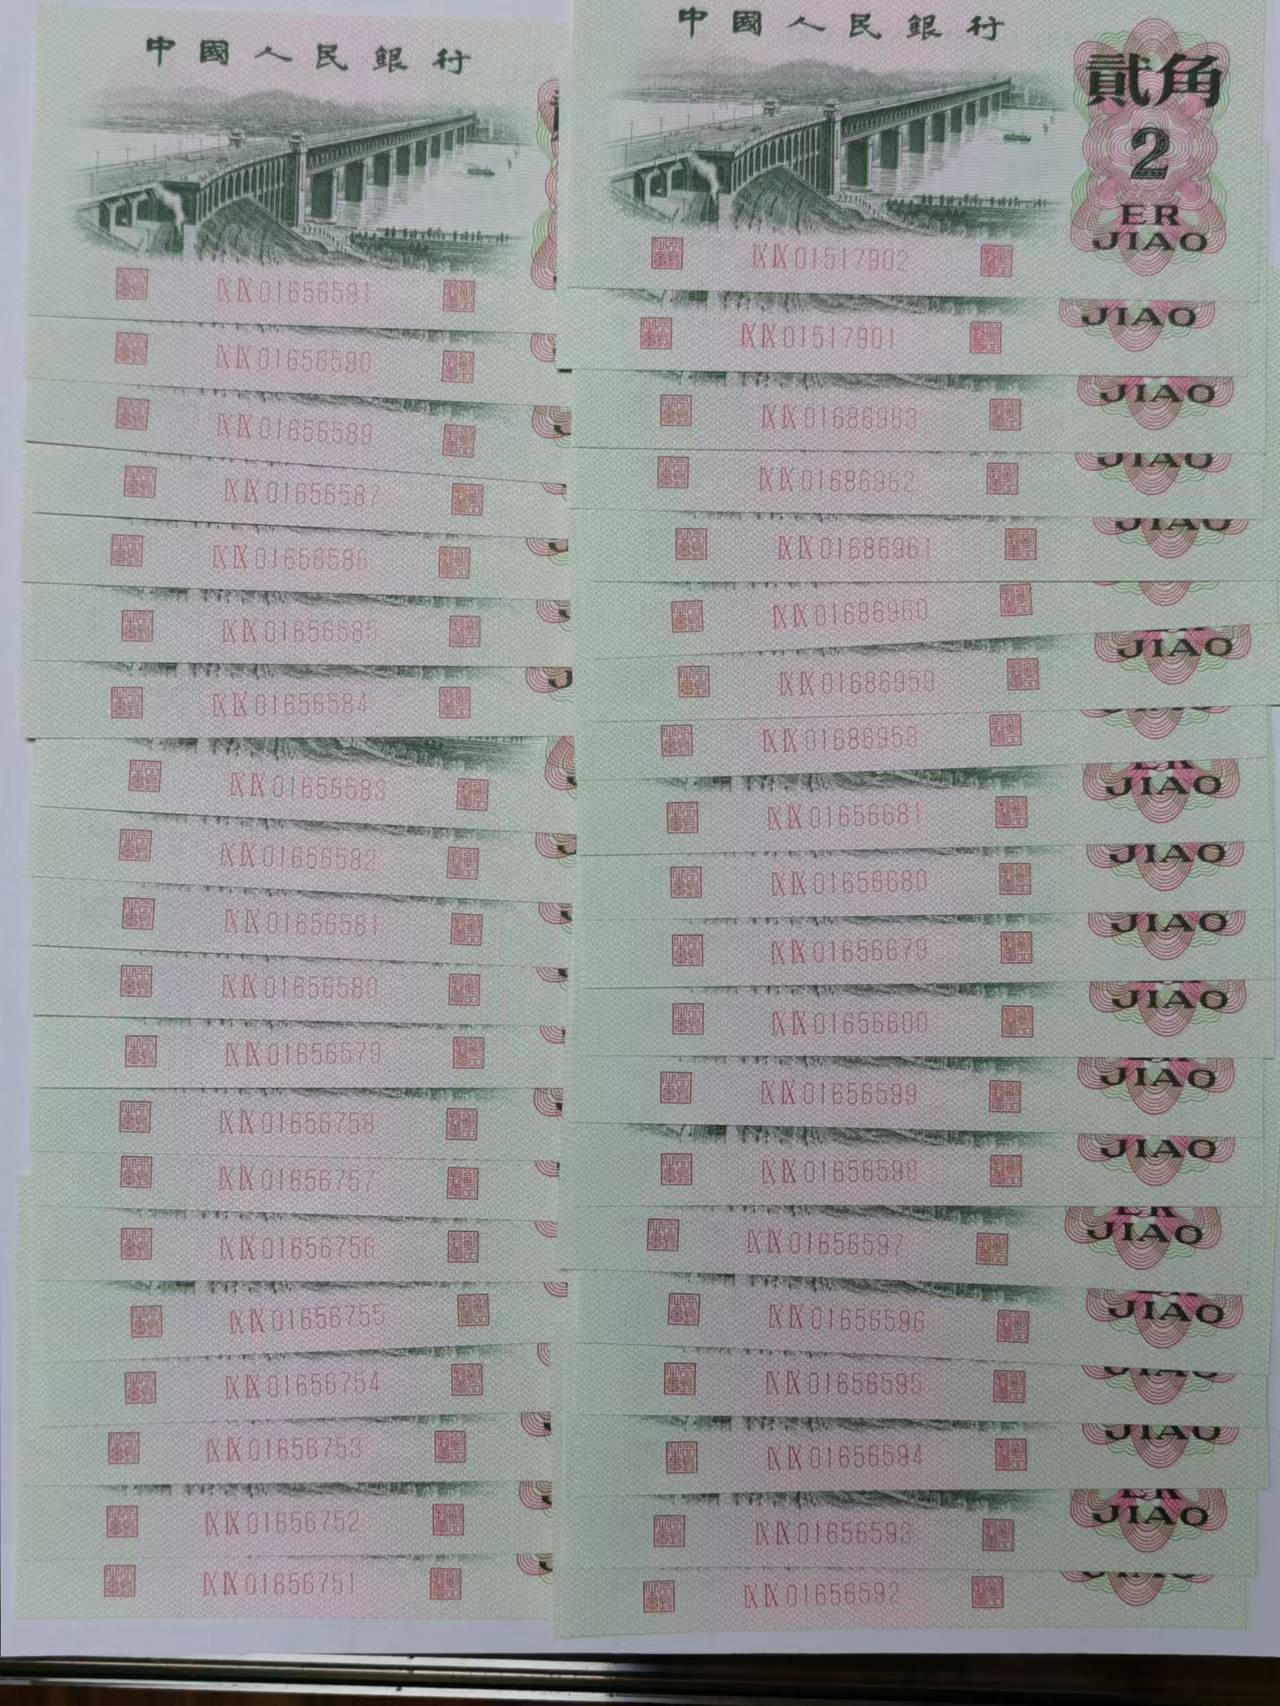 中國人民銀行
ⅨⅨ01656591
ⅨⅨ01656590
ⅨⅨ01656589
ⅨⅨ01656587
ⅨⅨ01656586
ⅨⅨ01656585
ⅨⅨ01656584
ⅨⅨ01656583
ⅨⅨ01656582
ⅨⅨ01656581
ⅨⅨ01656580
ⅨⅨ01656579
ⅨⅨ01656758
ⅨⅨ01656757
ⅨⅨ01656756
ⅨⅨ01656755
ⅨⅨ01656754
ⅨⅨ01656753
ⅨⅨ01656752
ⅨⅨ01656751
中國人民銀行
貳角
2
ER
JIAO
ⅨⅨ01517902
JIAO
ⅨⅨ01517901
JIAO
ⅨⅨ01686963
JIAO
ⅨⅨ01686962
JIAO
ⅨⅨ01686961
ⅨⅨ01686960
JIAO
ⅨⅨ01686959
ⅨⅨ01686958
ER
JIAO
ⅨⅨ01656681
JIAO
ⅨⅨ01656680
JIAO
ⅨⅨ01656679
JIAO
ⅨⅨ01656600
JIAO
ⅨⅨ01656599
JIAO
ⅨⅨ01656598
ER
JIAO
ⅨⅨ01656597
JIAO
ⅨⅨ01656596
JIAO
ⅨⅨ01656595
JIAO
ⅨⅨ01656594
ER
JIAO
ⅨⅨ01656593
JIAO
ⅨⅨ01656592